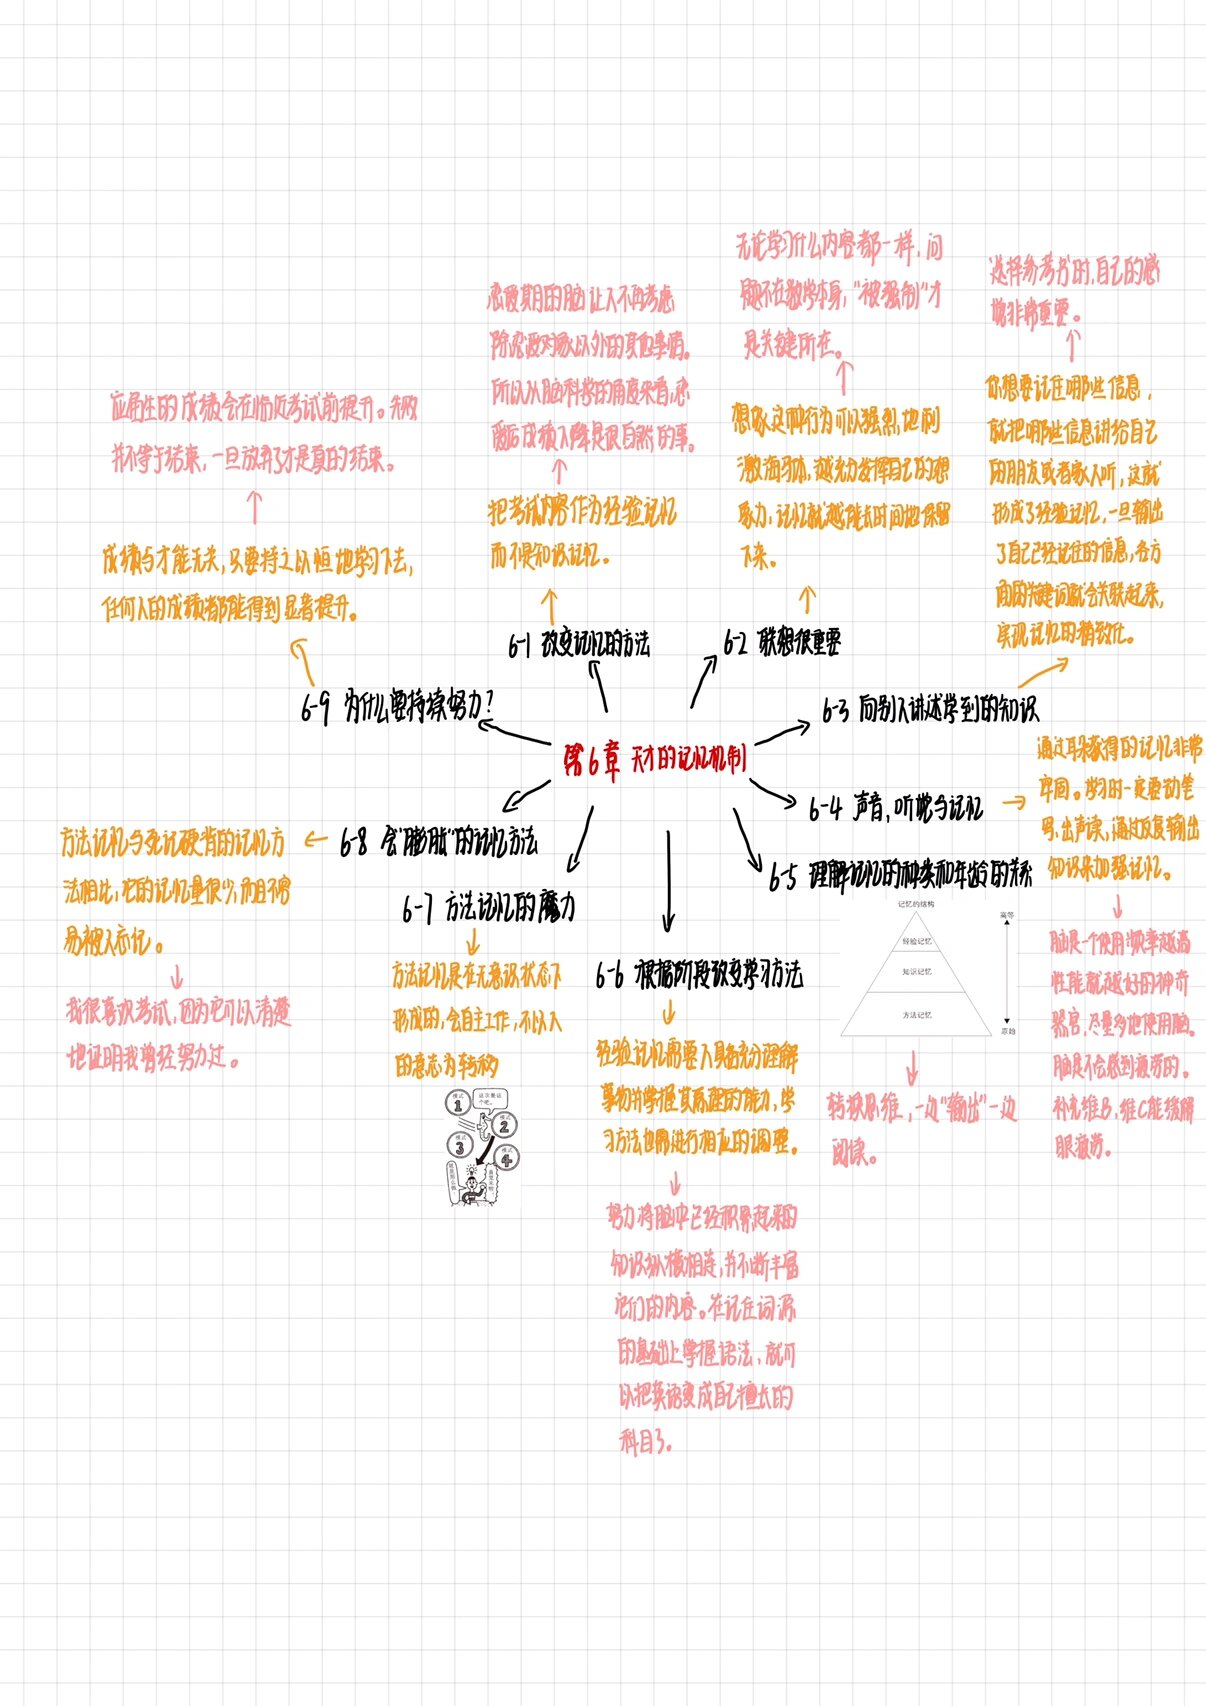 第6章 天才的记忆机制
6-1 改变记忆的方法
把考试内容作为经验记忆
而不是知识记忆。
恋爱期间的脑让人不再考虑
除恋爱对象以外的其他事情。
所以从脑科学的角度来看,恋
爱后成绩下降是很自然的事。
6-2 联想很重要
想象这种行为可以强烈地刺
激海马体,越充分发挥自己的想
象力,记忆就越能长时间地保留
下来。
无论学习什么内容都一样,问
题不在数学本身,“被强制”才
是关键所在。
6-3 向别人讲述学到的知识
你想要记住哪些信息,
就把哪些信息讲给自己
的朋友或者家人听,这就
形成了经验记忆,一旦输出
了自己已经记住的信息,各方
面的关键词就会关联起来,
实现记忆的精致化。
选择参考书时,自己的感
觉非常重要。
6-4 声音,听觉与记忆
通过耳朵获得的记忆非常
牢固。学习时一定要动笔
写、出声读,通过反复输出
知识来加强记忆。
脑是一个使用频率越高
性能就越好的神奇
器官,尽量多地使用脑。
脑是不会感到疲劳的。
补充维B,维C能缓解
眼疲劳。
6-5 理解记忆的种类和年龄的关系
记忆的结构
高等
经验记忆
知识记忆
方法记忆
原始
转换思维,一边“输出”一边
阅读。
6-6 根据阶段改变学习方法
经验记忆需要人具备充分理解
事物并掌握其原理的能力,学
习方法也需进行相应的调整。
努力将脑中已经积累起来的
知识纵横相连,并不断丰富
它们的内容。在记住词源
的基础上掌握语法,就可
以把英语变成自己擅长的
科目了。
6-7 方法记忆的魔力
方法记忆是在无意识状态下
形成的,会自主工作,不以人
的意志为转移
模式
1
这次要这
个吧。
模式
2
模式
3
模式
4
6-8 会“膨胀”的记忆方法
方法记忆与死记硬背的记忆方
法相比,它的记忆量很少,而且不容
易被人忘记。
我很喜欢考试,因为它可以清楚
地证明我曾经努力过。
6-9 为什么要持续努力?
成绩与才能无关,只要持之以恒地学习下去,
任何人的成绩都能得到显著提升。
应届生的成绩会在临近考试前提升。失败
并不等于结束,一旦放弃了才是真的结束。